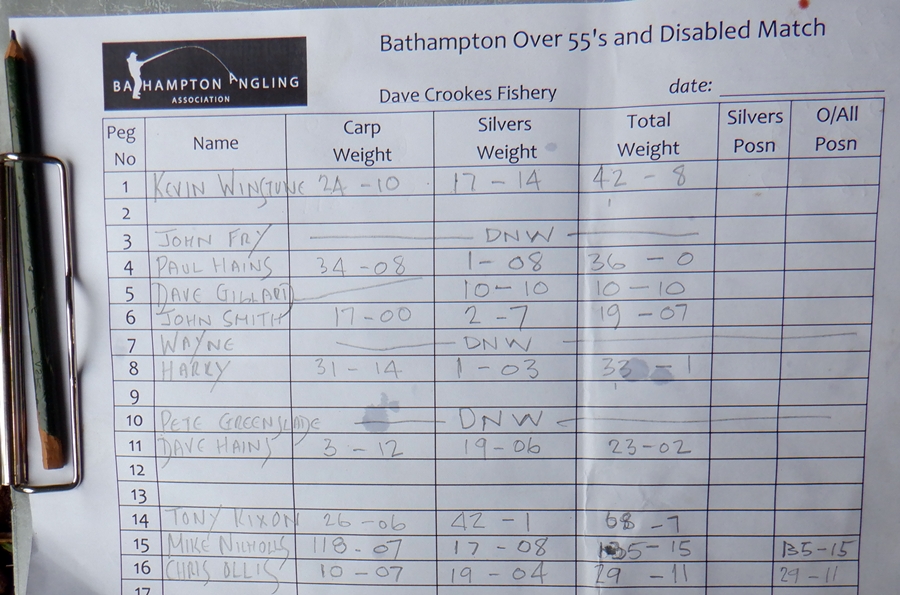 Bathampton Over 55's and Disabled Match
BATHAMPTON ANGLING
ASSOCIATION
Dave Crookes Fishery date:
Peg No Name Carp Weight Silvers Weight Total Weight Silvers Posn O/All Posn
1 KEVIN 24-10 17-14 42-8
2
3 JOHN FRY DNW
4 PAUL HAINS 34-08 1-08 36-0
5 DAVE GILLARD 10-10 10-10
6 JOHN SMITH 17-00 2-7 19-07
7 WAYNE DNW
8 HARRY 31-14 1-03 33-1
9
10 PETE GREENSLADE DNW
11 DAVE HAINS 3-12 19-06 23-02
12
13
14 TONY RIXON 26-06 42-1 68-7
15 MIKE NICHOLLS 118-07 17-08 135-15 135-15
16 CHRIS OLLIS 10-07 19-04 29-11 29-11
17